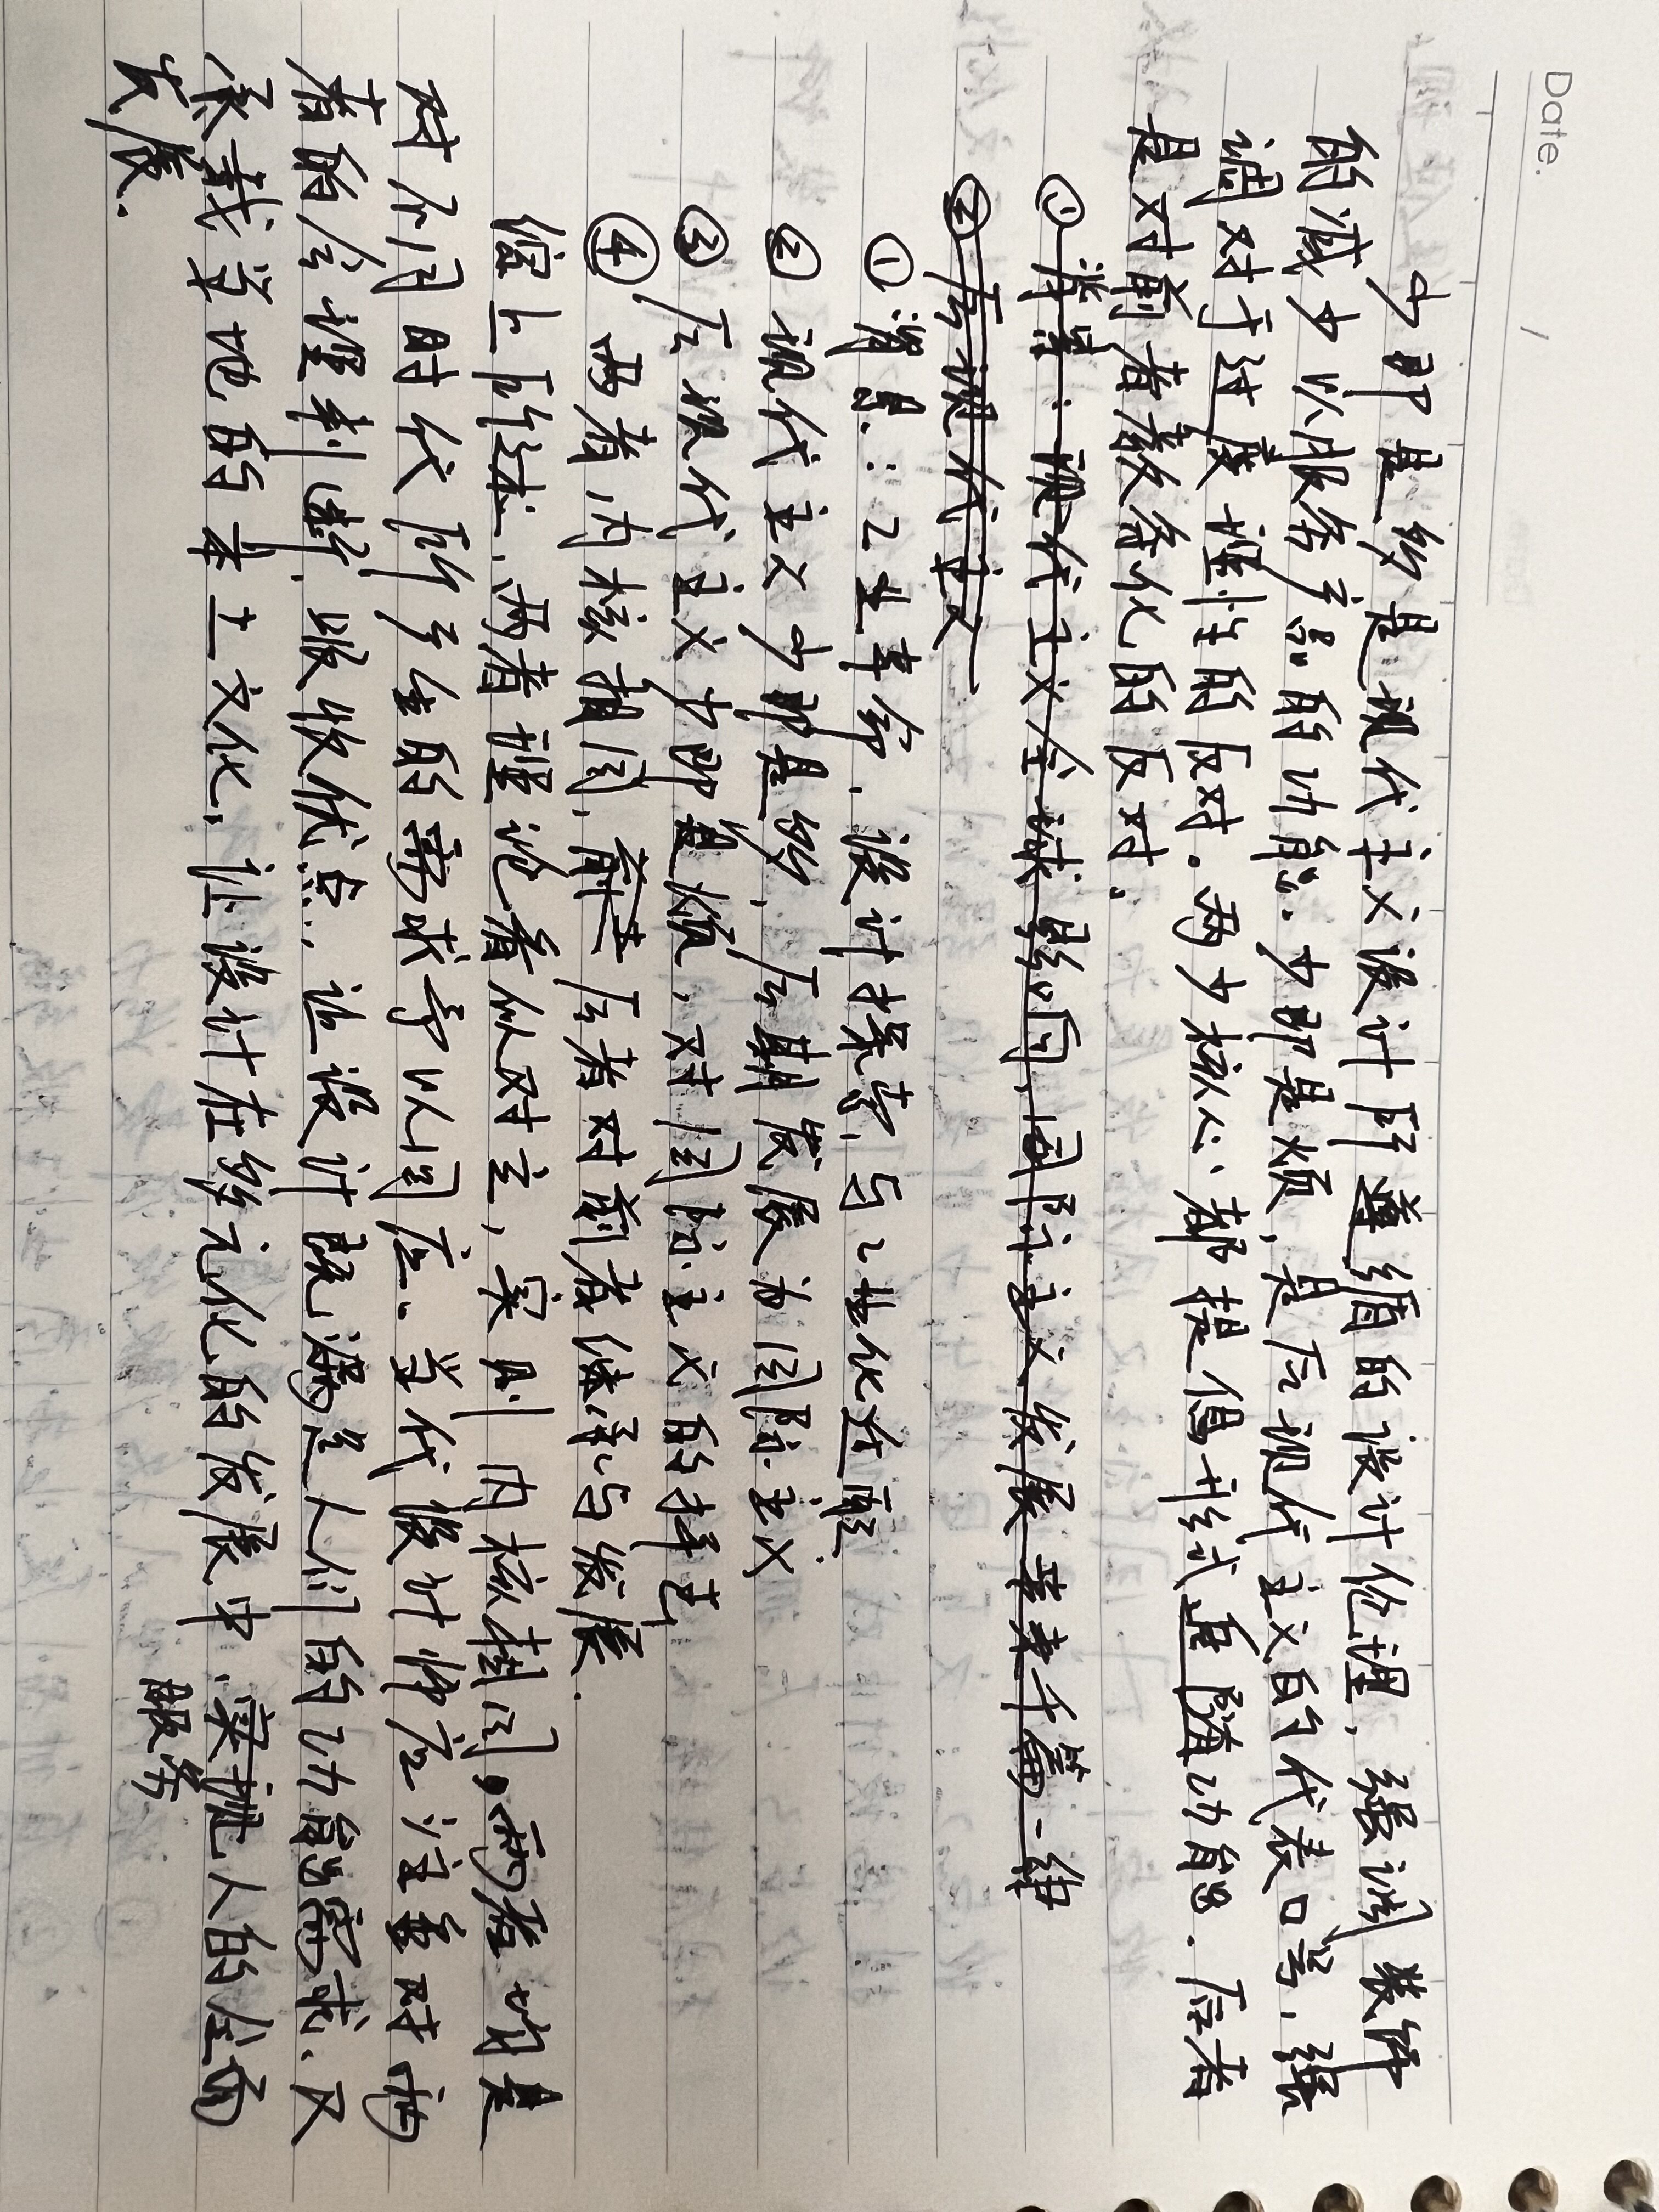 Date.
少即是多是现代主义设计所遵循的设计伦理，强调装饰
的减少以服务产品的功能.少即是烦,是后现代主义的代表口号,强
调对于过度理性的反对.两少核心都提倡形式追随功能.后者
是对前者教条化的反对.
①背景:现代主义全球影响,国际主义发展 千篇一律
②后现代主义
①背景:工业革命,设计探索,与工业化
②现代主义少即是多,后期发展为国际主义
③后现代主义少即是烦,对国际主义的
④两者内核相同,后者对前者继承与发展.
综上所述,两者理论看似对立,实则内核相同。两者 是
对不同时代所产生的需求予以回应.当代设计师应注重对两
者的合理判断,吸收优点.让设计既满足人们的功能需求.又
承载当地的本土文化,让设计在多元化的发展中.实现人的全面
服务
发展.